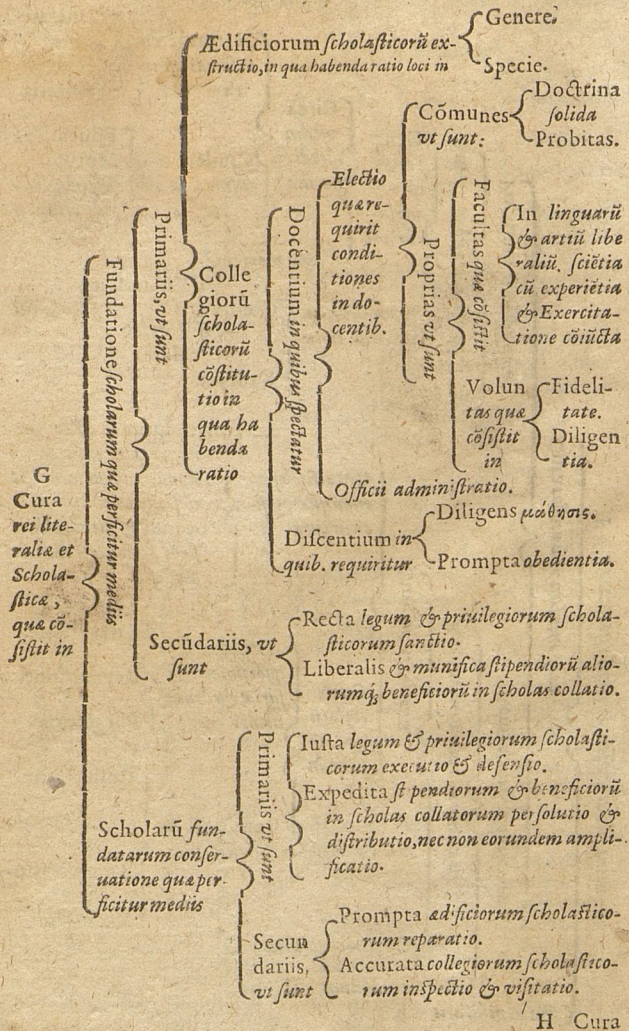 G
Cura
rei lite-
rariæ et
Schola-
sticæ,
quæ cõ-
sistit in
Fundatione scholarum quæ perficitur mediis
Primariis, vt sunt
Ædificiorum scholasticorũ ex-
structio, in qua habenda ratio loci in
Genere.
Specie.
Colle
giorũ
schola-
sticorũ
cõstitu-
tio in
qua ha
benda
ratio
Docentium in quibus spectatur
Electio
quæ re-
quirit
condi-
tiones
in do-
centib.
Cõmunes
vt sunt:
Doctrina
solida
Probitas.
Proprias vt sunt
Facultas quæ cõsistit
In linguarũ
& artiũ libe
raliũ. sciẽtia
cũ experiẽtia
& Exercita-
tione cõiũcta
Volun
tas quæ
cõsistit
in
Fideli-
tate.
Diligen
tia.
Officii administratio.
Discentium in
quib. requiritur
Diligens μάθησις.
Prompta obedientia.
Secũdariis, vt
sunt
Recta legum & priuilegiorum schola-
sticorum sanctio.
Liberalis & munifica stipendiorũ alio-
rumq́; beneficiorũ in scholas collatio.
Scholarũ fun-
datarum conser-
uatione quæ per-
ficitur mediis
Primariis vt sunt
Iusta legum & priuilegiorum scholasti-
corum executio & defensio.
Expedita stipendiorum & beneficiorũ
in scholas collatorum persolutio &
distributio, nec non eorundem ampli-
ficatio.
Secun
dariis,
vt sunt
Prompta ædificiorum scholastico-
rum reparatio.
Accurata collegiorum scholastico-
rum inspectio & visitatio.
H Cura